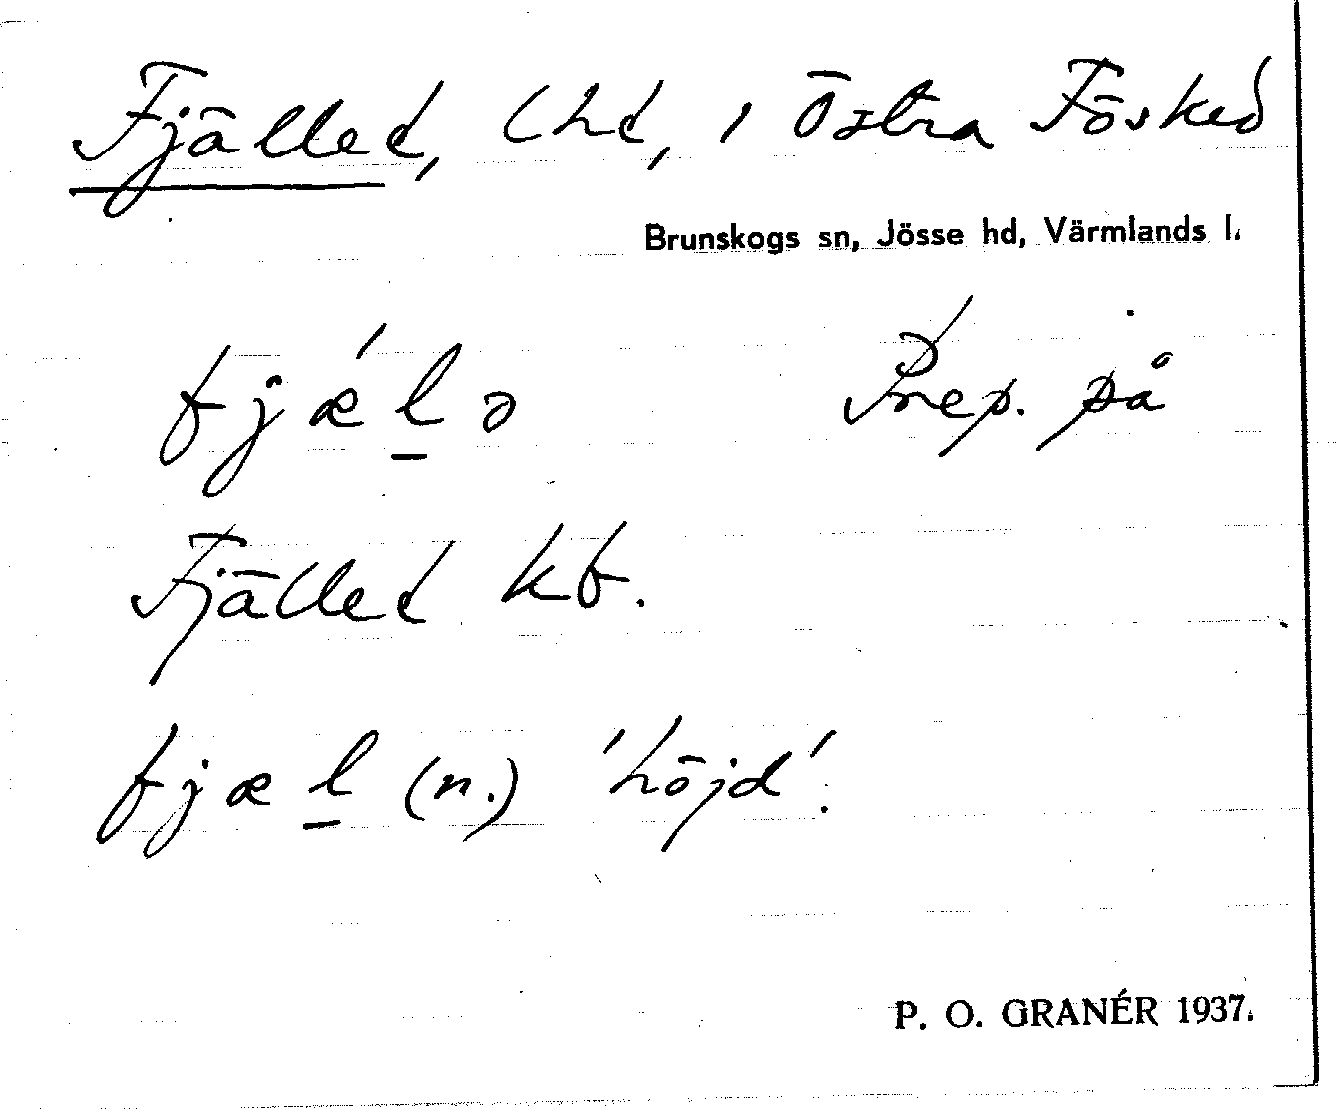 Fjället, lht, i Östra Fösked
Brunskogs sn, Jösse hd, Värmlands l.
fjæ´l̠ə Prep. på
Fjället kb.
fjæl̠ (n.) 'höjd'.
P. O. GRANÉR 1937.